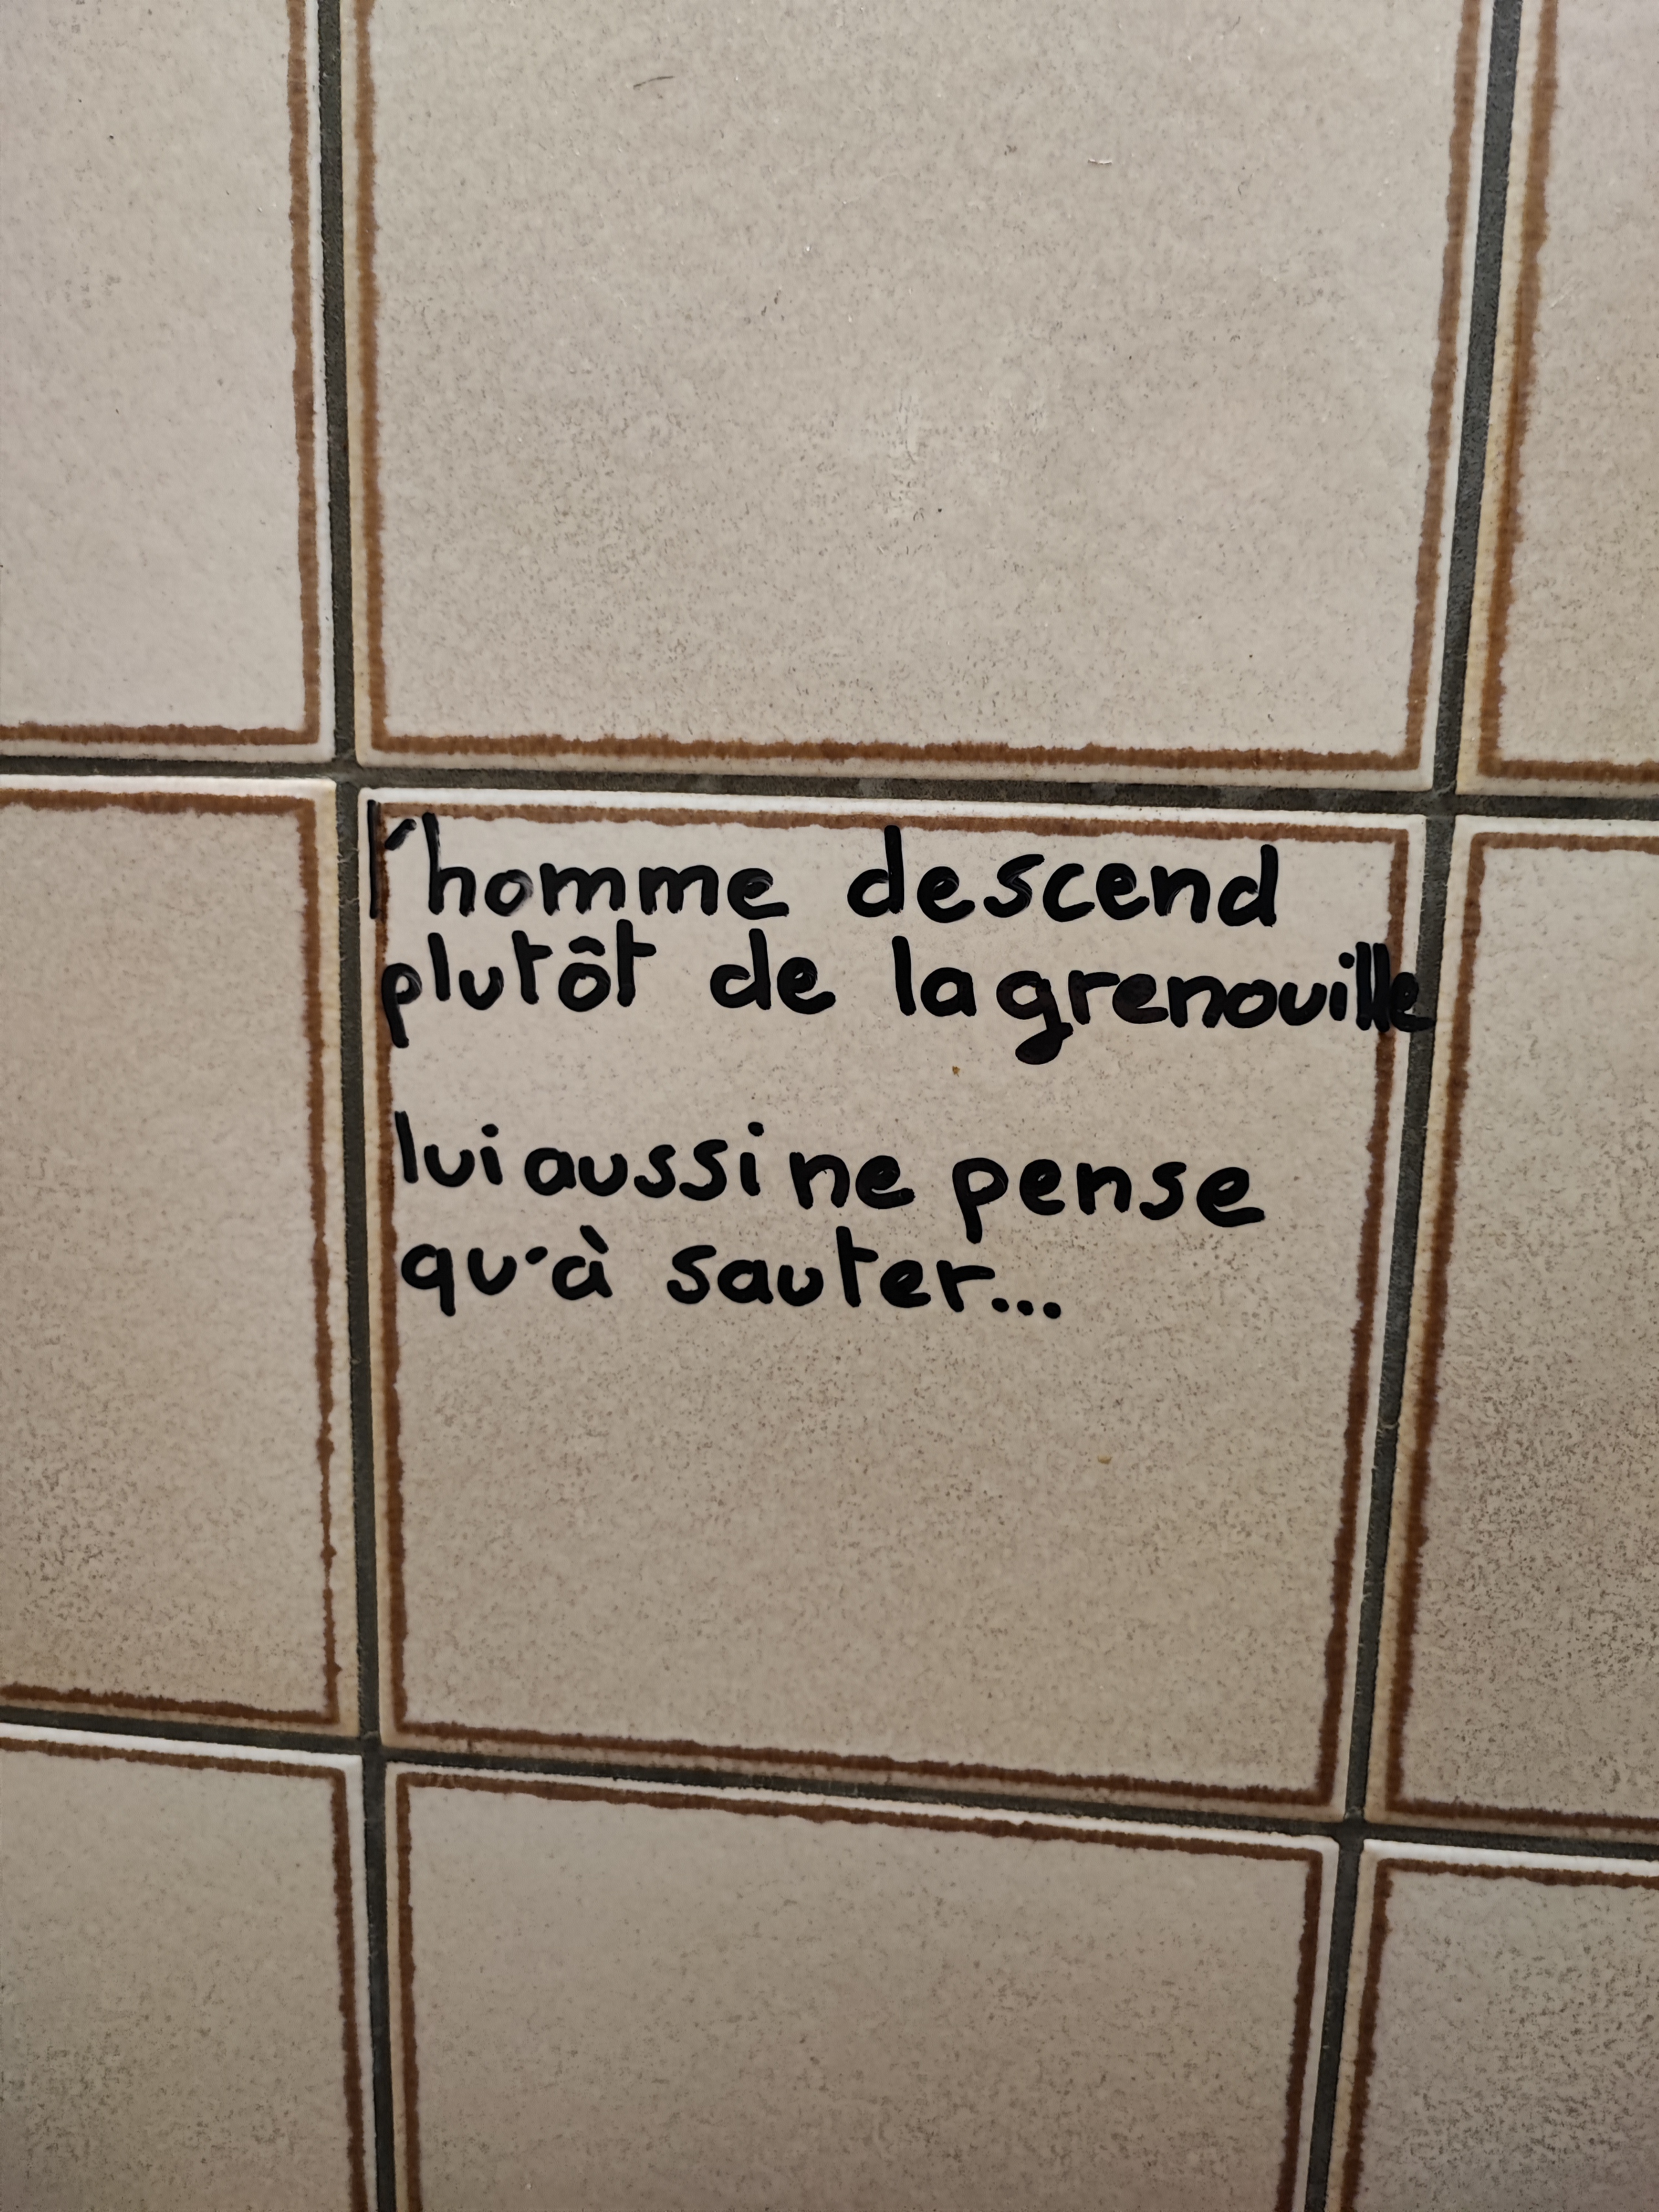 l'homme descend
plutôt de la grenouille
lui aussi ne pense
qu'à sauter...